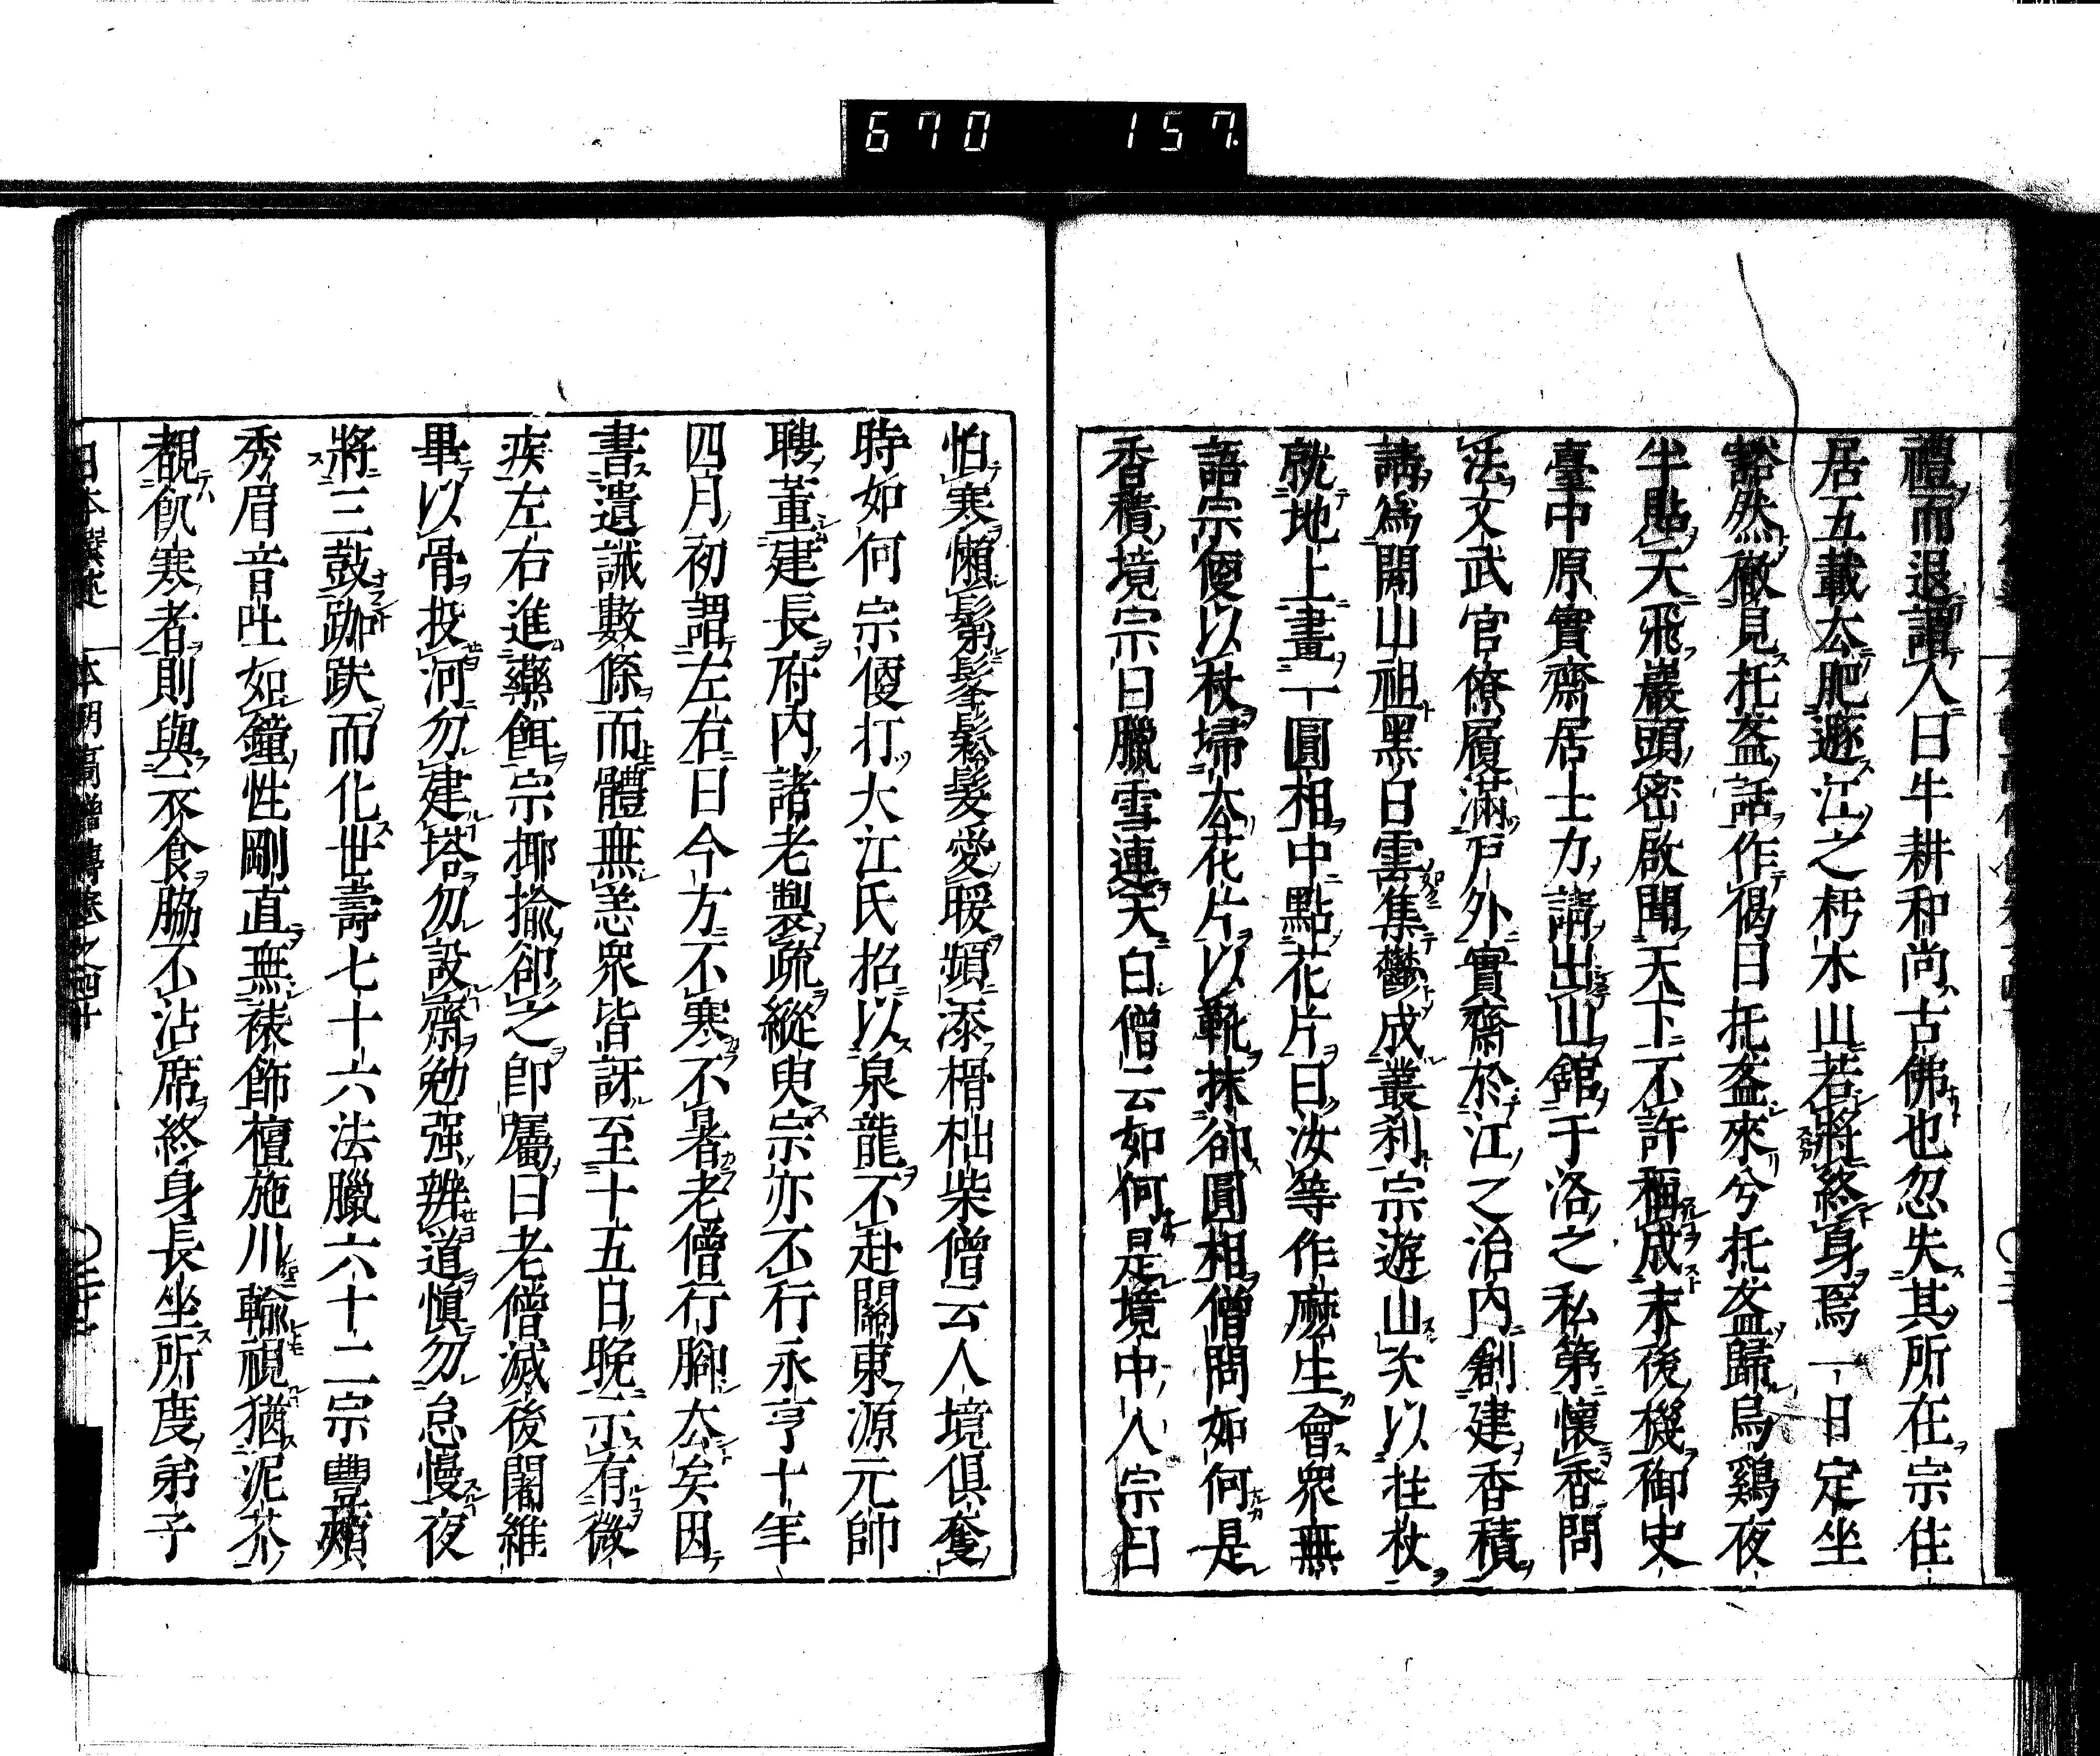 670 157
禮而退謂人曰牛耕和尚古佛也忽失其所在宗住
居五載厺肥遯江之朽木山若將終身焉一日定坐
豁然徹見托盋話作偈曰托盋來兮托盋歸烏鷄夜
半貼天飛巖頭密啟聞天下不許稱成末後機御史
臺中原實齋居士力請出山舘于洛之私第懷香問
法文武官僚屨滿戶外實齋於江之治内創建香積
請爲開山祖黑白雲集鬱成叢刹宗遊山次以拄杖
就地上畫一圓相中點花片曰汝等作麽生會衆無
語宗便以杖掃厺花片以靴抹卻圓相僧問如何是
香積境宗曰臘雪連天白僧云如何是境中人宗曰
怕寒懶髴鬅鬆髮愛暖頻添榾柮柴僧云人境俱奪
時如何宗便打大江氏招以泉龍不赴關東源元帥
聘董建長府内諸老製疏縱臾宗亦不行永亨十年
四月初謂左右曰今方不寒不暑老僧行腳厺矣因
書遺誡數條而體無恙衆皆訝至十五日晚示有微
疾左右進藥餌宗揶揄卻之卽囑曰老僧滅後闍維
畢以骨投河勿建塔勿設齋勉强辨道愼勿怠慢夜
將三鼓跏趺而化世壽七十六法臘六十二宗豐頰
秀眉音吐如鐘性剛直無裱飾檀施川輸視猶泥芥
覩飢寒者則與衣食脇不沾席終身長坐所度弟子
日本撰述 本朝高僧傳卷之四十